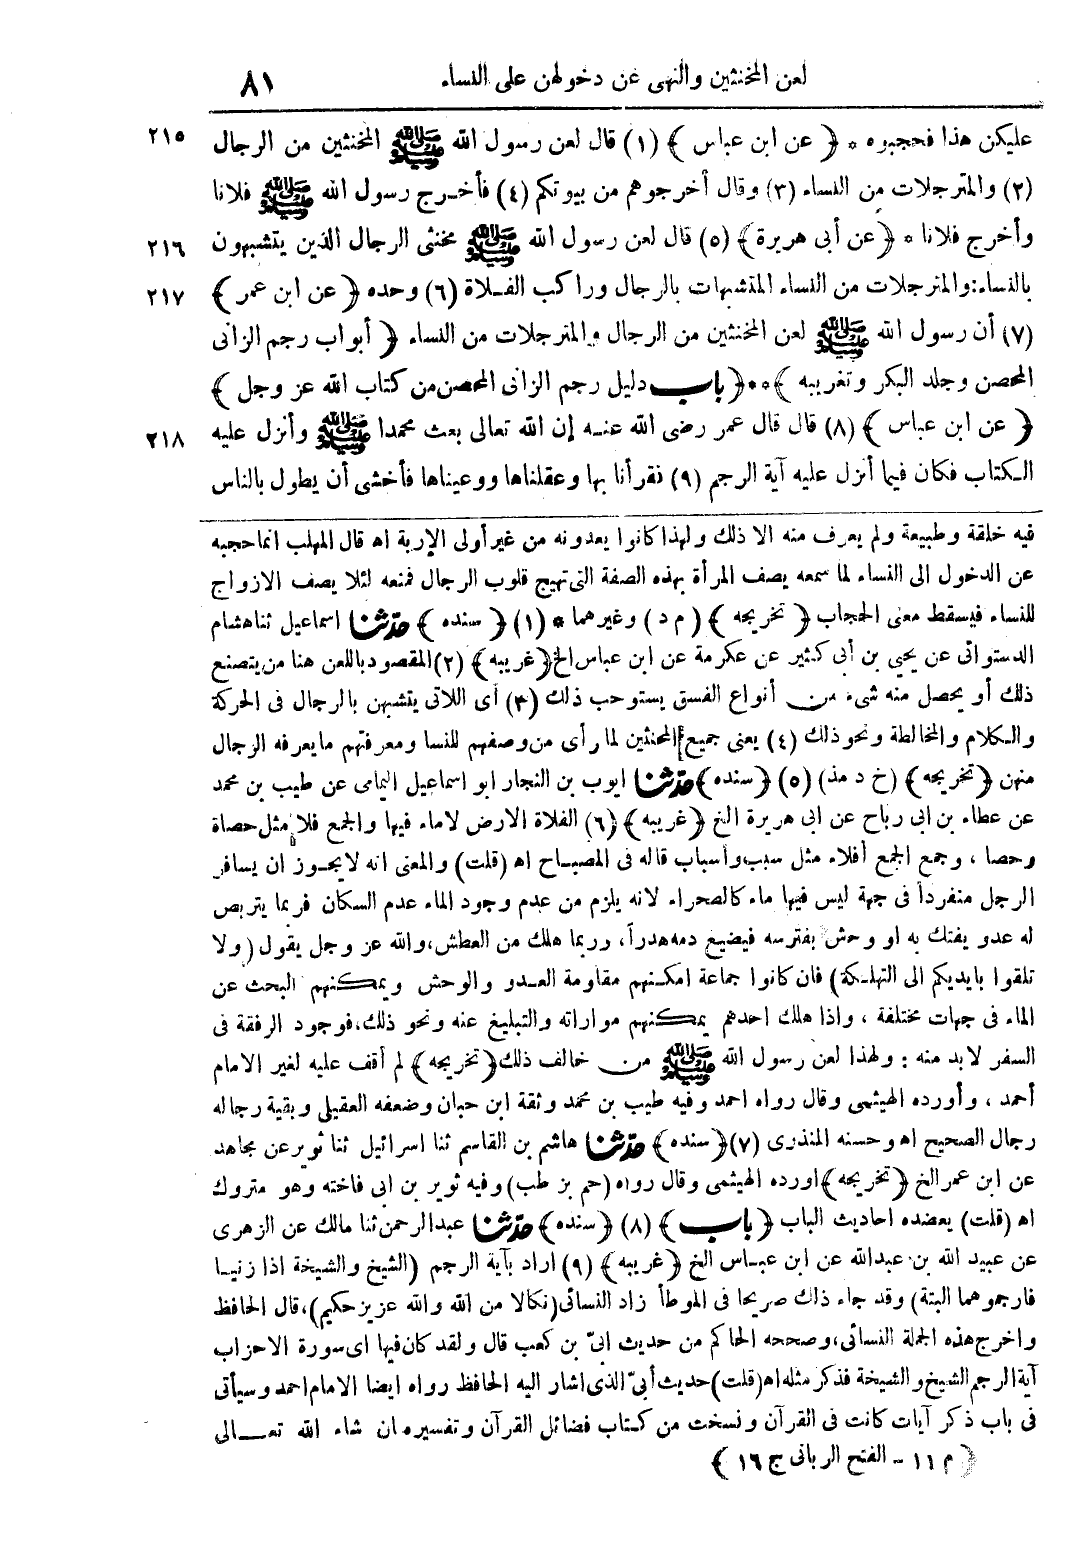 لعن المخنثين والنهى عن دخولهن على النساء ٨١
عليكن هذا فحجبوه * ﴿ عن ابن عباس ﴾ (١) قال لعن رسول الله ﷺ المخنثين من الرجال ٢١٥
(٢) والمترجلات من النساء (٣) وقال أخرجوهم من بيوتكم (٤) فأخرج رسول الله ﷺ فلانا
وأخرج فلانا * ﴿ عن أبى هريرة ﴾ (٥) قال لعن رسول الله ﷺ مخنثى الرجال الذين يتشبهون ٢١٦
بالنساء: والمترجلات من النساء المتشبهات بالرجال وراكب الفلاة (٦) وحده ﴿ عن ابن عمر ﴾ ٢١٧
(٧) أن رسول الله ﷺ لعن المخنثين من الرجال والمترجلات من النساء ﴿ أبواب رجم الزانى
المحصن وجلد البكر وتغريبه ﴾ ** ﴿ باب دليل رجم الزانى المحصن من كتاب الله عز وجل ﴾
﴿ عن ابن عباس ﴾ (٨) قال قال عمر رضى الله عنه إن الله تعالى بعث محمدا ﷺ وأنزل عليه ٢١٨
الكتاب فكان فيما أنزل عليه آية الرجم (٩) نقرأنا بها وعقلناها ووعيناها فأخشى أن يطول بالناس
فيه خلقة وطبيعة ولم يعرف منه الا ذلك ولهذا كانوا يعدونه من غير أولى الإربة اه قال المهلب انما حجبه
عن الدخول الى النساء لما سمعه يصف المرأة بهذه الصفة التى تهيج قلوب الرجال فمنعه لئلا يصف الازواج
للنساء فيسقط معنى الحجاب ﴿ تخريجه ﴾ (م د) وغيرهما * (١) ﴿ سنده ﴾ حدثنا اسماعيل ثنا هشام
الدستوائى عن يحيى بن أبى كثير عن عكرمة عن ابن عباس الخ ﴿ غريبه ﴾ (٢) المقصود باللعن هنا من يتصنع
ذلك أو يحصل منه شىء من أنواع الفسق يستوجب ذلك (٣) أى اللاتى يتشبهن بالرجال فى الحركة
والكلام والمخالطة ونحو ذلك (٤) يعنى جميع المخنثين لما رأى من وصفهم للنسا ومعرفتهم ما يعرفه الرجال
منهن ﴿ تخريجه ﴾ (خ د مذ) (٥) ﴿ سنده ﴾ حدثنا ايوب بن النجار ابو اسماعيل اليمامى عن طيب بن محمد
عن عطاء بن ابى رباح عن ابى هريرة الخ ﴿ غريبه ﴾ (٦) الفلاة الارض لا ماء فيها والجمع فلا مثل حصاة
وحصا ، وجمع الجمع أفلاء مثل سبب وأسباب قاله فى المصباح اه (قلت) والمعنى انه لا يجوز ان يسافر
الرجل منفرداً فى جهة ليس فيها ماء كالصحراء لانه يلزم من عدم وجود الماء عدم السكان فربما يتربص
له عدو يفتك به او وحش يفترسه فيضيع دمه هدراً، وربما هلك من العطش، والله عز وجل يقول (ولا
تلقوا بايديكم الى التهلكة) فان كانوا جماعة امكنهم مقاومة العدو والوحش ويمكنهم البحث عن
الماء فى جهات مختلفة ، واذا هلك احدهم يمكنهم مواراته والتبليغ عنه ونحو ذلك، فوجود الرفقة فى
السفر لابد منه : ولهذا لعن رسول الله ﷺ من خالف ذلك ﴿ تخريجه ﴾ لم أقف عليه لغير الامام
أحمد ، وأورده الهيثمى وقال رواه احمد وفيه طيب بن محمد وثقة ابن حيان وضعفه العقيلى وبقية رجاله
رجال الصحيح اه وحسنه المنذرى (٧) ﴿ سنده ﴾ حدثنا هاشم بن القاسم ثنا اسرائيل ثنا ثوير عن مجاهد
عن ابن عمر الخ ﴿ تخريجه ﴾ اورده الهيثمى وقال رواه (حم بز طب) وفيه ثوير بن ابى فاخته وهو متروك
اه (قلت) يعضده احاديث الباب ﴿ باب ﴾ (٨) ﴿ سنده ﴾ حدثنا عبدالرحمن ثنا مالك عن الزهرى
عن عبيد الله بن عبدالله عن ابن عباس الخ ﴿ غريبه ﴾ (٩) اراد بآية الرجم (الشيخ والشيخة اذا زنيا
فارجموهما البتة) وقد جاء ذلك صريحا فى الموطأ زاد النسائى (نكالا من الله والله عزيز حكيم)، قال الحافظ
واخرج هذه الجملة النسائى، وصححه الحاكم من حديث ابىّ بن كعب قال ولقد كان فيها اى سورة الاحزاب
آية الرجم الشيخ والشيخة فذكر مثله اه (قلت) حديث أبىّ الذى اشار اليه الحافظ رواه ايضا الامام احمد وسيأتى
فى باب ذكر آيات كانت فى القرآن ونسخت من كتاب فضائل القرآن وتفسيره ان شاء الله تعالى
﴿ م ١١ - الفتح الربانى ج ١٦ ﴾